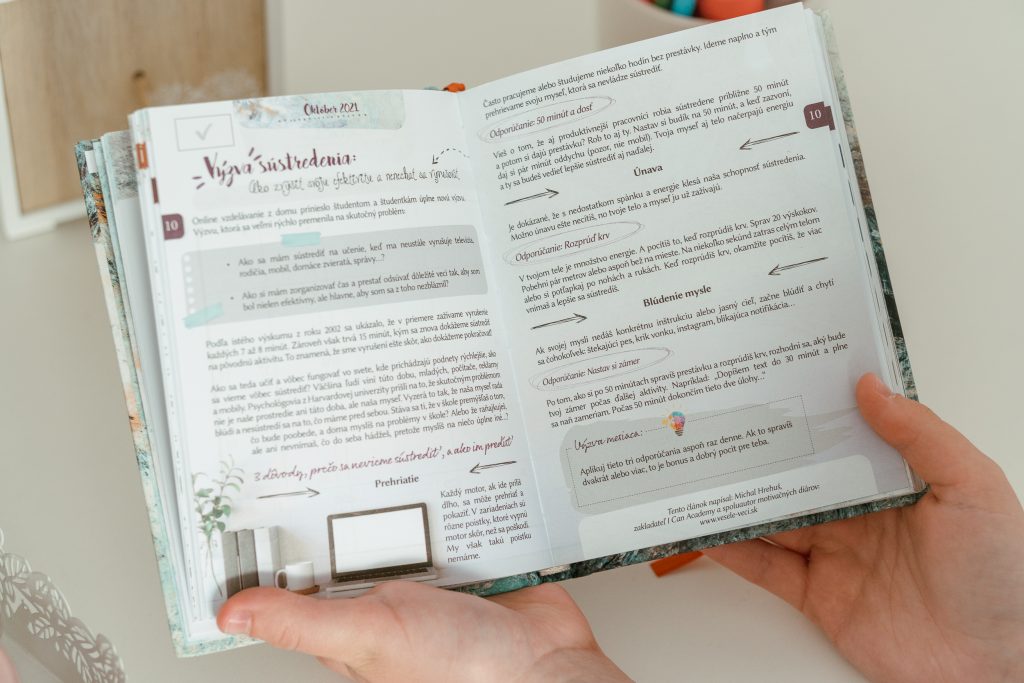 Október 2021
Výzva sústredenia:
Ako zvýšiť svoju efektivitu a nenechať sa vyrušiť
10
Online vzdelávanie z domu prinieslo študentom a študentkám úplne novú výzvu.
Výzvu, ktorá sa veľmi rýchlo premenila na skutočný problém:
• Ako sa mám sústrediť na učenie, keď ma neustále vyrušuje televízia,
rodičia, mobil, domáce zvieratá, správy...?
• Ako si mám zorganizovať čas a prestať odsúvať dôležité veci tak, aby som
bol nielen efektívny, ale hlavne, aby som sa z toho nezbláznil?
Podľa istého výskumu z roku 2002 sa ukázalo, že v priemere zažívame vyrušenie
každých 7 až 8 minút. Zároveň však trvá 15 minút, kým sa znova dokážeme sústrediť
na pôvodnú aktivitu. To znamená, že sme vyrušení ešte skôr, ako dokážeme pokračovať.
Ako sa teda učiť a vôbec fungovať vo svete, kde prichádzajú podnety rýchlejšie, ako
sa vieme vôbec sústrediť? Väčšina ľudí viní túto dobu, mladých, počítače, reklamy
a mobily. Psychológovia z Harvardovej univerzity prišli na to, že skutočným problémom
nie je naše prostredie ani táto doba, ale naša myseľ. Vyzerá to tak, že naša myseľ rada
blúdi a nesústredí sa na to, čo máme pred sebou. Stáva sa ti, že v škole premýšľaš o tom,
čo bude poobede, a doma myslíš na problémy v škole? Alebo že raňajkuješ,
ale ani nevnímaš, čo do seba hádžeš, pretože myslíš na niečo úplne iné...?
3 dôvody, prečo sa nevieme sústrediť, a ako im predísť!
Prehriatie
Každý motor, ak ide príliš
dlho, sa môže prehriať a
pokaziť. V zariadeniach sú
rôzne poistky, ktoré vypnú
motor skôr, než sa poškodí.
My však takú poistku
nemáme.
Často pracujeme alebo študujeme niekoľko hodín bez prestávky. Ideme naplno a tým
prehrievame svoju myseľ, ktorá sa nevládze sústrediť.
Odporúčanie: 50 minút a dosť
Vieš o tom, že aj produktívnejší pracovníci robia sústredene približne 50 minút
a potom si dajú prestávku? Rob to aj ty. Nastav si budík na 50 minút, a keď zazvoní,
daj si pár minút oddychu (pozor, nie mobil). Tvoja myseľ aj telo načerpajú energiu
a ty sa budeš vedieť lepšie sústrediť aj naďalej.
10
Únava
Je dokázané, že s nedostatkom spánku a energie klesá naša schopnosť sústredenia.
Možno únavu ešte necítiš, no tvoje telo a myseľ ju už zažívajú.
Odporúčanie: Rozprúď krv
V tvojom tele je množstvo energie. A pocítiš to, keď rozprúdiš krv. Sprav 20 výskokov.
Pobehni pár metrov alebo aspoň bež na mieste. Na niekoľko sekúnd zatras celým telom
alebo si potľapkaj po nohách a rukách. Keď rozprúdiš krv, okamžite pocítiš, že viac
vnímaš a lepšie sa sústredíš.
Blúdenie mysle
Ak svojej mysli nedáš konkrétnu inštrukciu alebo jasný cieľ, začne blúdiť a chytí
sa čohokoľvek: štekajúci pes, krik vonku, instagram, blikajúca notifikácia...
Odporúčanie: Nastav si zámer
Po tom, ako si po 50 minútach spravíš prestávku a rozprúdiš krv, rozhodni sa, aký bude
tvoj zámer počas ďalšej aktivity. Napríklad: „Dopíšem text do 30 minút a plne
sa naň zameriam. Počas 50 minút dokončím tieto dve úlohy...“
Výzva mesiaca:
Aplikuj tieto tri odporúčania aspoň raz denne. Ak to spravíš
dvakrát alebo viac, to je bonus a dobrý pocit pre teba.
Tento článok napísal: Michal Hrehuš,
zakladateľ I Can Academy a spoluautor motivačných diárov.
www.vesele-veci.sk